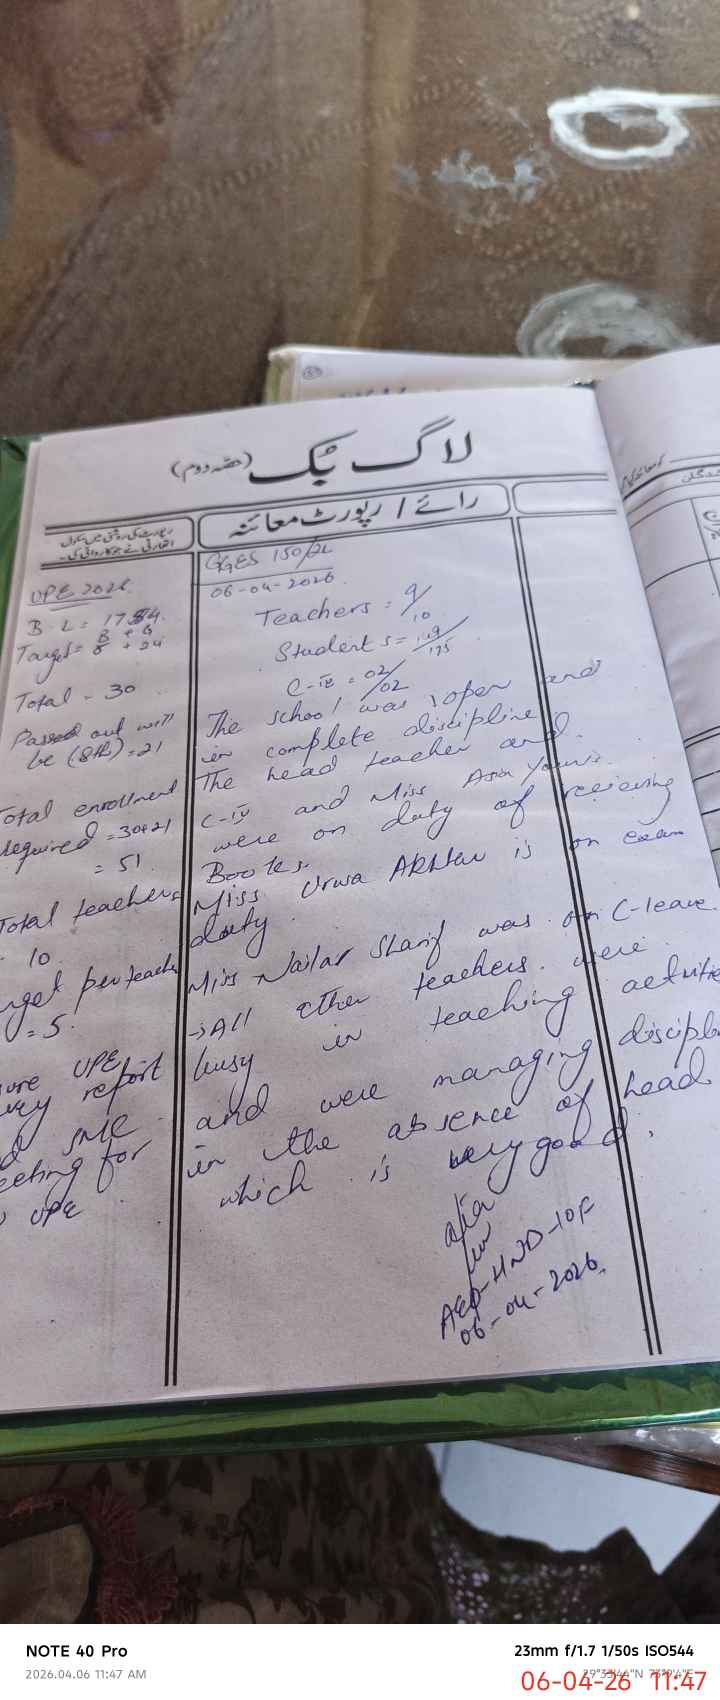 لاگ بک (حصہ دوم)
رائے / رپورٹ معائنہ
رپورٹ کی روشنی میں سکول
اتھارٹی نے جو کاروائی کی۔
UPE 2026
B.L = 174
Target = 6 + 24
Total - 30
Passed out will
be (8th) = 21
Total enrollment
required = 30+21
= 51
Total teachers
- 10
per teacher
= 5.
UPE
report
SMC
for
UPE
GGES 150/2L
06-04-2026.
Teachers = 9/10
Students = 149/175
C-IV = 02/02
The school was open and
in complete discipline
The head teacher and
C-IV and Miss Asia Younis
were on duty of receiving
Books.
Miss Urwa Akhtar is on exam
duty.
Miss Nailar Sharif was on C-leave.
→ All other teachers were
busy in teaching
and were managing
in the absence of head
which is very good.
AEO-HND-10F
06-04-2026.
NOTE 40 Pro
2026.04.06 11:47 AM
23mm f/1.7 1/50s ISO544
06-04-26 11:47